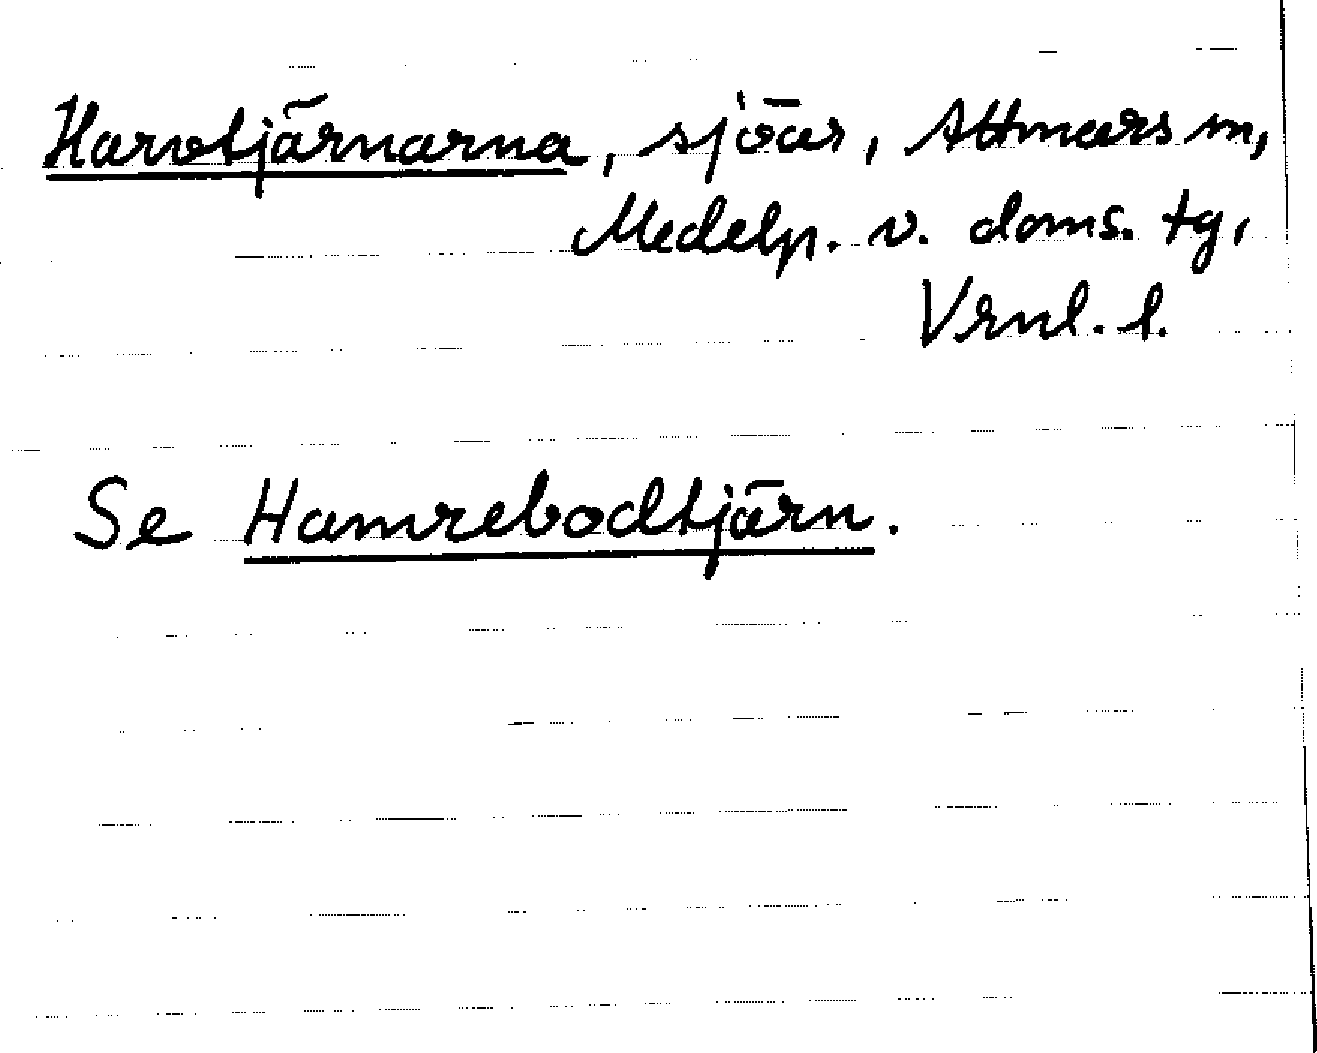 Harvtjärnarna, sjöar, Attmars sn,
Medelp. v. doms. tg,
Vrnl. l.
Se Hamrebodtjärn.